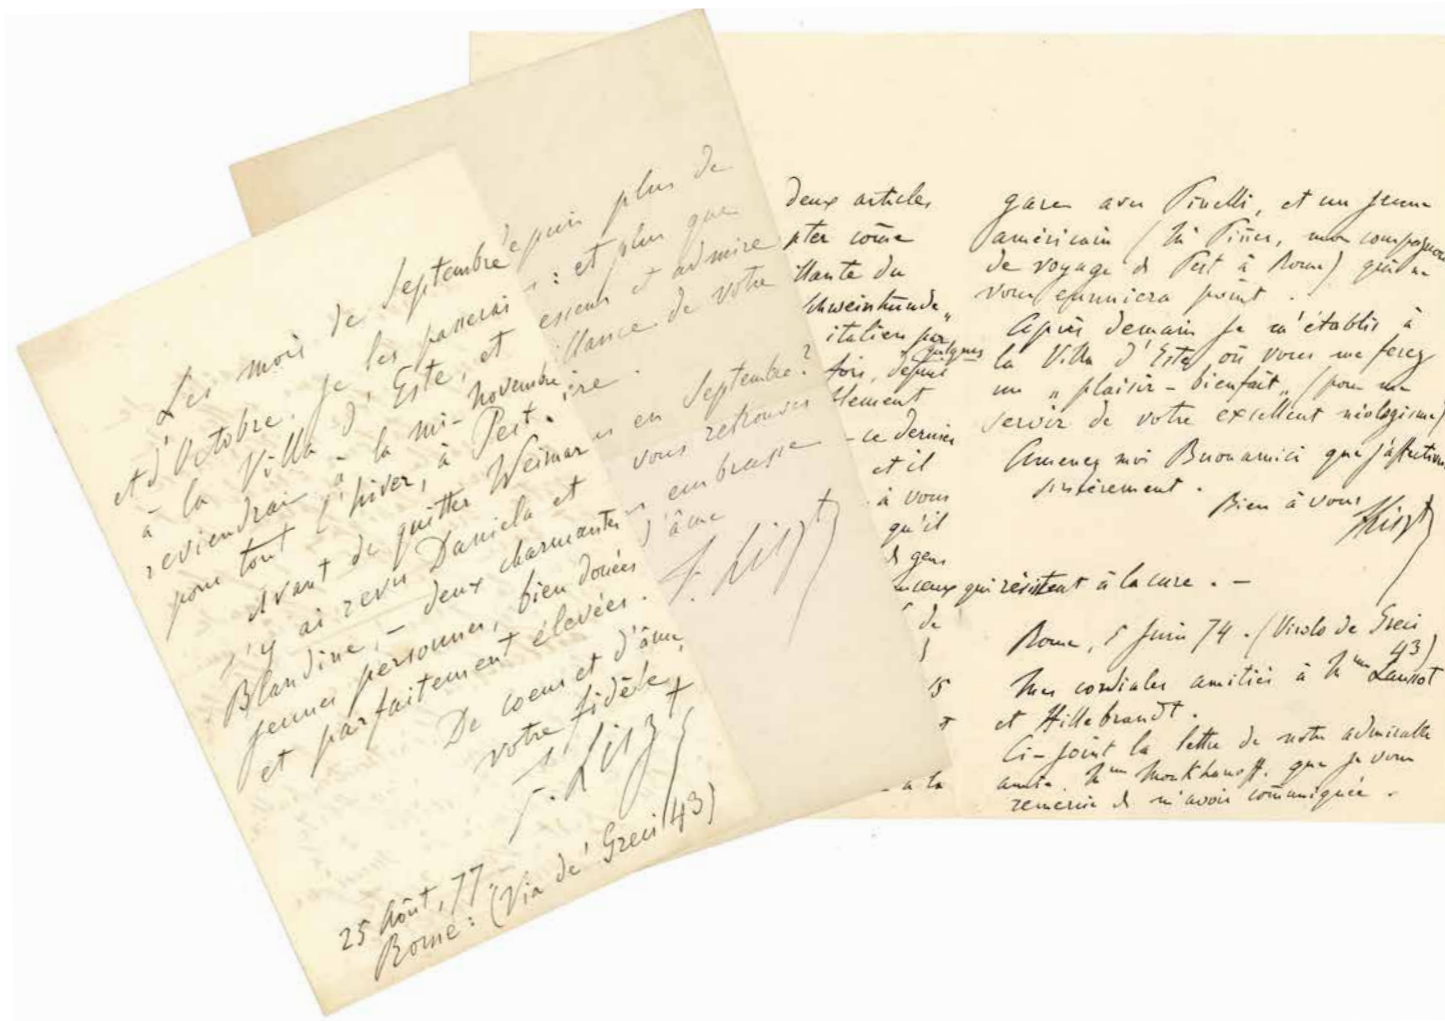 Les mois de Septembre
et d'Octobre, je les passerai
à la Villa d'Este, et
reviendrai à la mi-novembre,
pour tout l'hiver, à Pest.
Avant de quitter Weimar
j'y ai revu Daniela et
Blandine, – deux charmantes
jeunes personnes, bien douées
et parfaitement élevées.
De coeur et d'âme,
votre fidèle,
F. Liszt
25 Août, 77.
Rome: (Via de' Greci 43)
depuis plus de
: et plus que
et admire
illance de votre
ire.
en Septembre?
vous retrouver
embrasse
d'âme
F. Liszt
deux articles
pter come
illante du
schweinhunde„
italien par
quelques
fois, depuis
llement
– ce dernier
et il
à vous
qu'il
gens
qui résistent à la cure. –
de
15
à la
gare avec Pinelli, et un jeune
américain (Mr Pinner, mon compagnon
de voyage de Pest à Rome) qui ne
vous ennuiera point.
Après demain je m'établis à
la Villa d'Este, où vous me ferez
un „plaisir-bienfait„ (pour me
servir de votre excellent néologisme)
Amenez moi Buonamici que j'affectionne
sincèrement.
Bien à vous
FLiszt
Rome, Juin 74. (Vicolo de Greci
43)
Mes cordiales amitiés à Mme Laussot
et Hillebrandt.
Ci-joint la lettre de notre admirable
amie, Mme Moukhanoff, que je vous
remercie de m'avoir comuniquée.